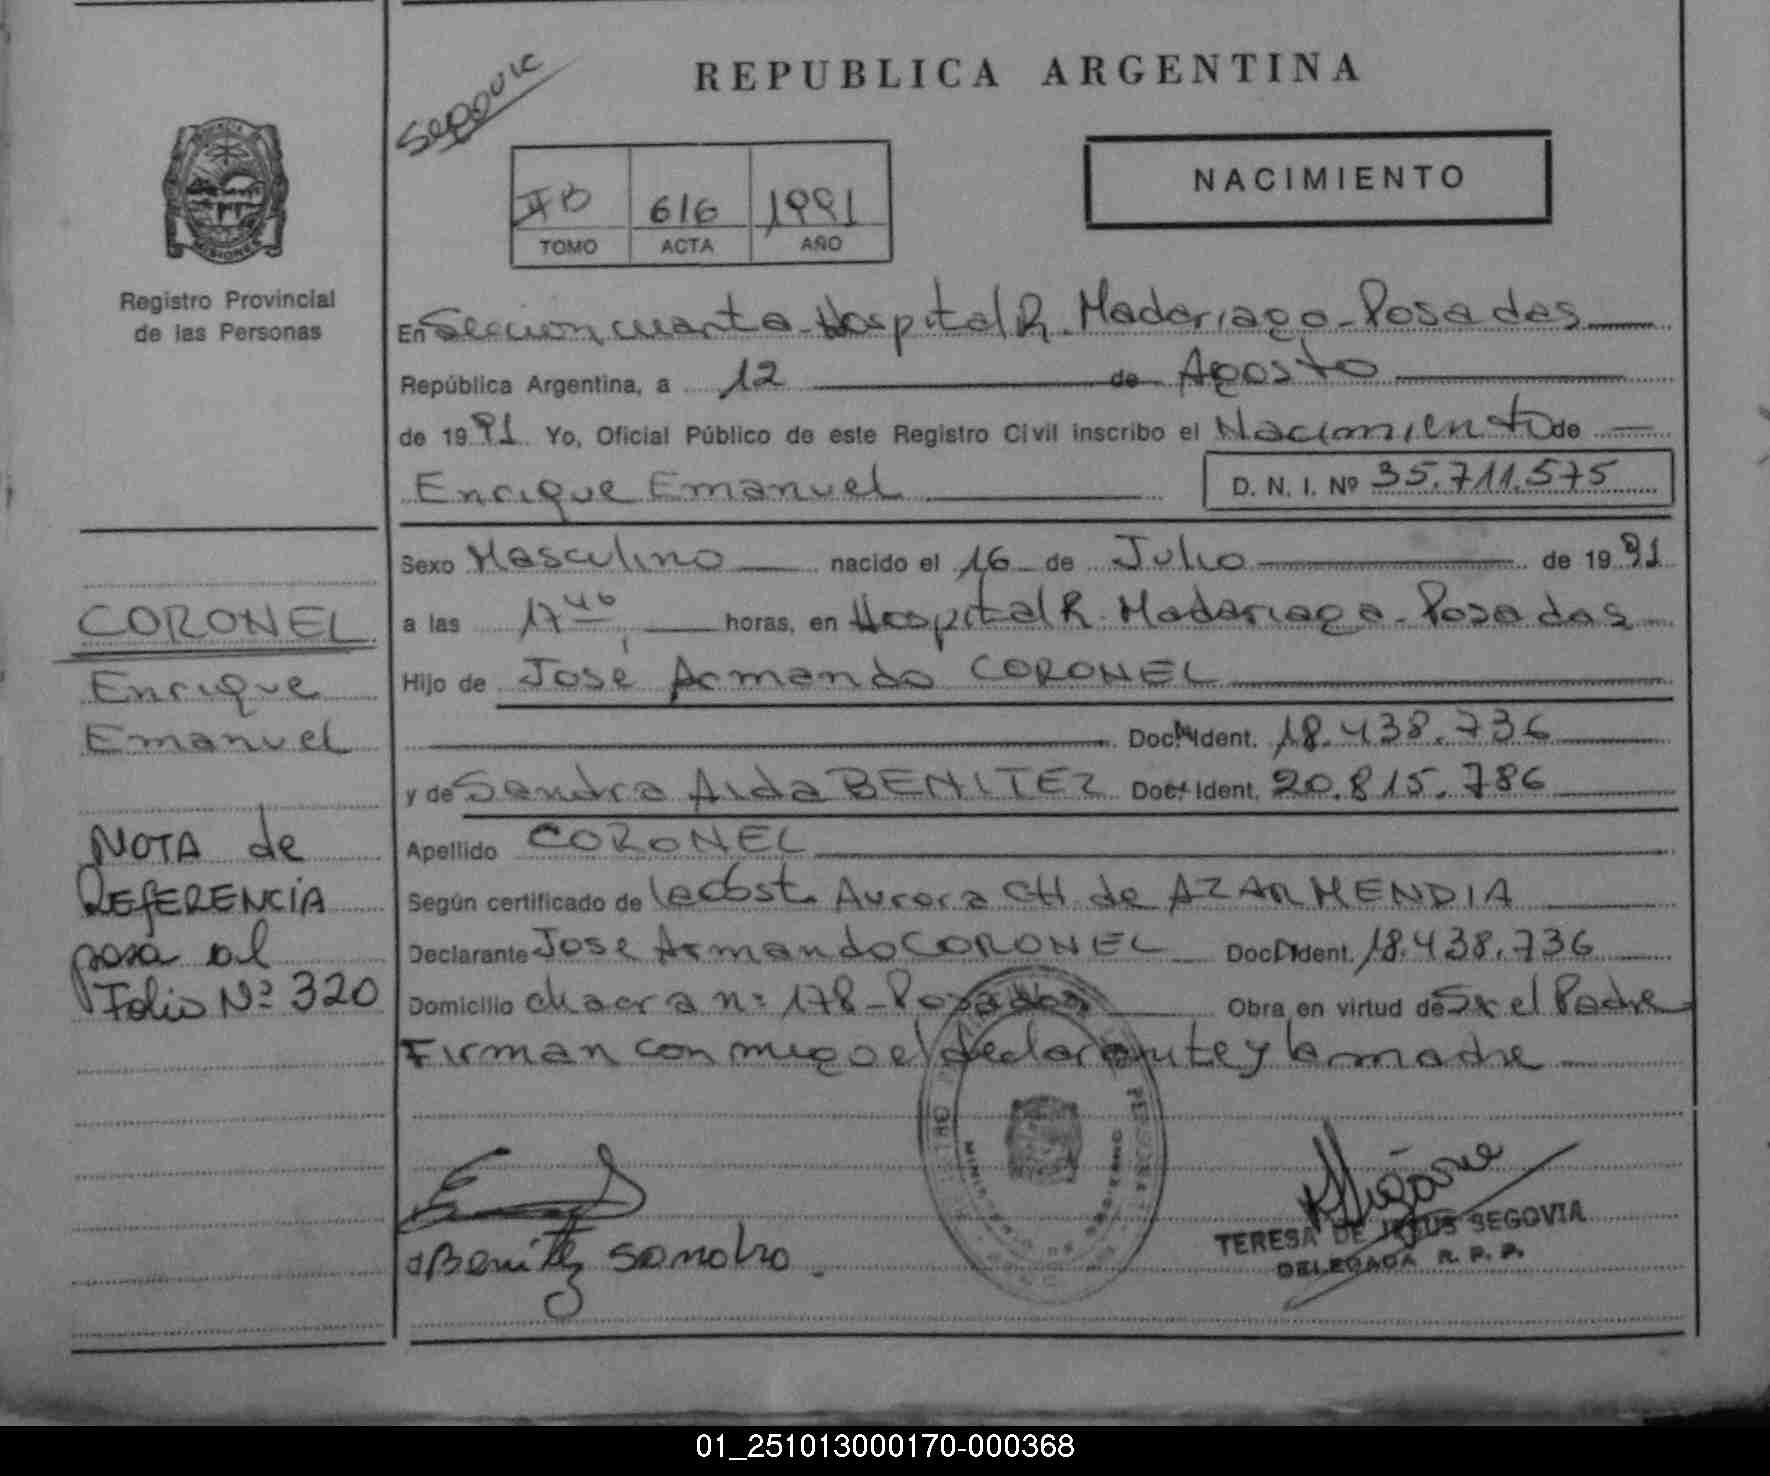 REPUBLICA ARGENTINA
NACIMIENTO
616 1991
TOMO ACTA AÑO
Registro Provincial
de las Personas
En Seccion cuarta - Hospital R. Madariaga - Posadas
República Argentina, a 12 de Agosto
de 1991 Yo, Oficial Público de este Registro Civil inscribo el Nacimiento de
Enrique Emanuel D. N. I. Nº 35.711.575
Sexo Masculino nacido el 16 de Julio de 1991
a las 17 46 horas, en Hospital R. Madariaga - Posadas
Hijo de José Armando CORONEL
Doc. Ident. 18.438.736
y de Sandra Aida BENITEZ Doc. Ident. 20.815.786
Apellido CORONEL
Según certificado de la Obst. Aurora CH. de AZARMENDIA
Declarante Jose Armando CORONEL Doc. Ident. 18.438.736
Domicilio chacra nº 178 - Posadas Obra en virtud de Sr el Padre
Firman conmigo el declarante y la madre
CORONEL
Enrique
Emanuel
NOTA de
REFERENCIA
pasa al
Folio Nº 320
Benitez Sandra.
TERESA DE JESUS SEGOVIA
DELEGADA R. P. P.
01_251013000170-000368